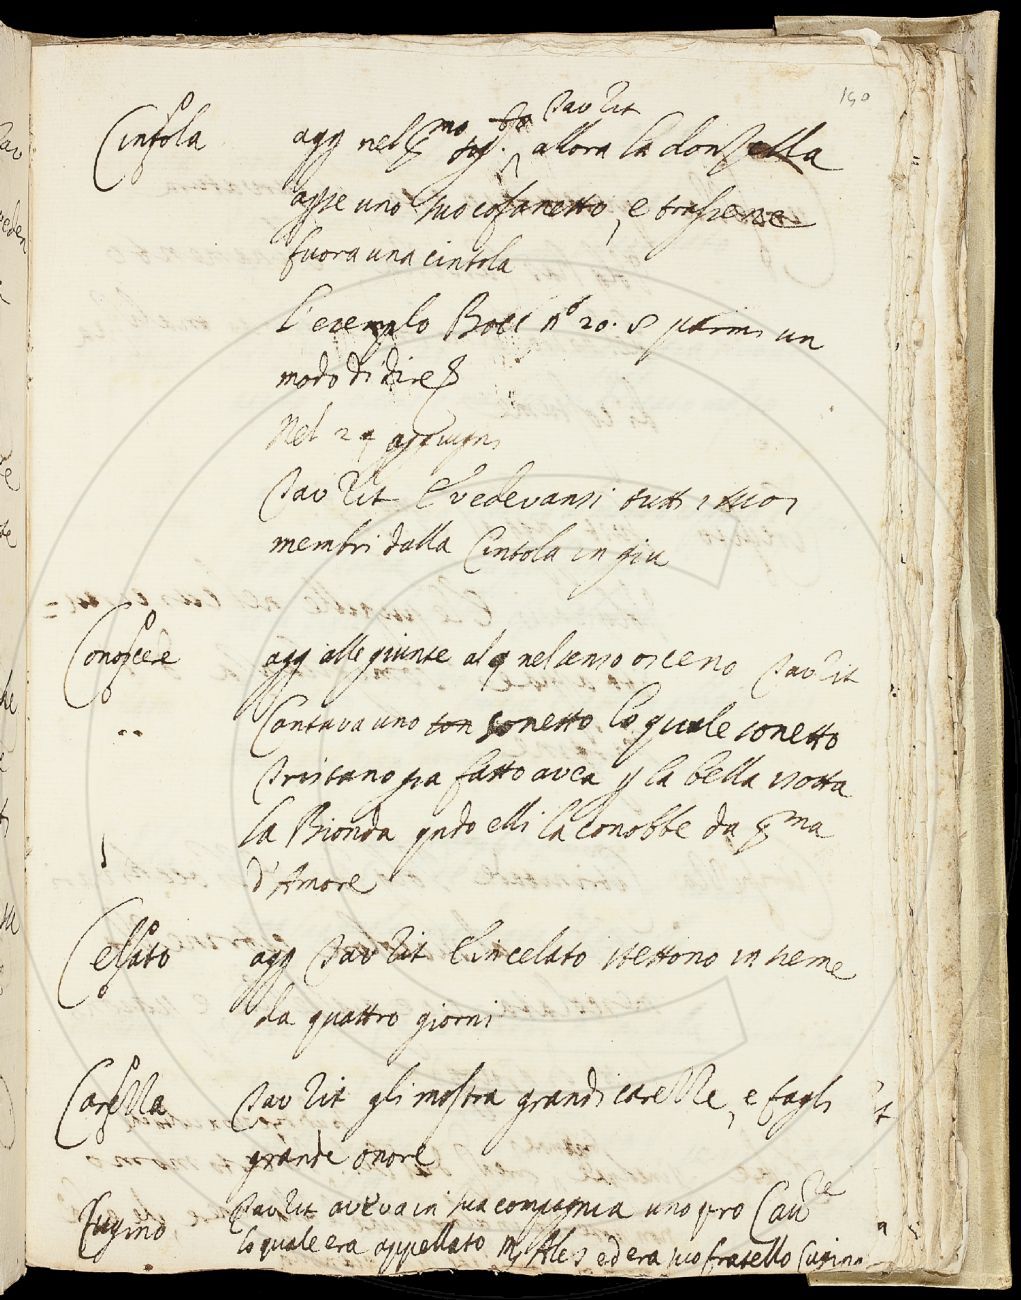 150
Cintola agg nel pmo sig. Tav Rit allora la donzella
aperse uno suo cofanetto, e trassene
fuora una cintola
L'esempio Bocc nº 20. 8 parmi un
modo di dire
Nel 2 q aggiugni
Tav Rit E vedevansi tutti i suoi
membri dalla Cintola in giu
Conoscere agg alle giunte al q nel senso osceno Tav Rit
Cantava uno son sonetto lo quale sonetto
Tristano gia fatto avea p la bella Isotta
la Bionda qndo elli la conobbe da pma
d'Amore
Celato agg Tav Rit E in celato stettono insieme
da quattro giorni
Carezza Tav Rit gli mostra grandi carezze, e fagli
grande onore
Cugino Tav Rit aveva in sua compagnia uno pro Cavre
lo quale era appellato ed era suo fratello Cugino